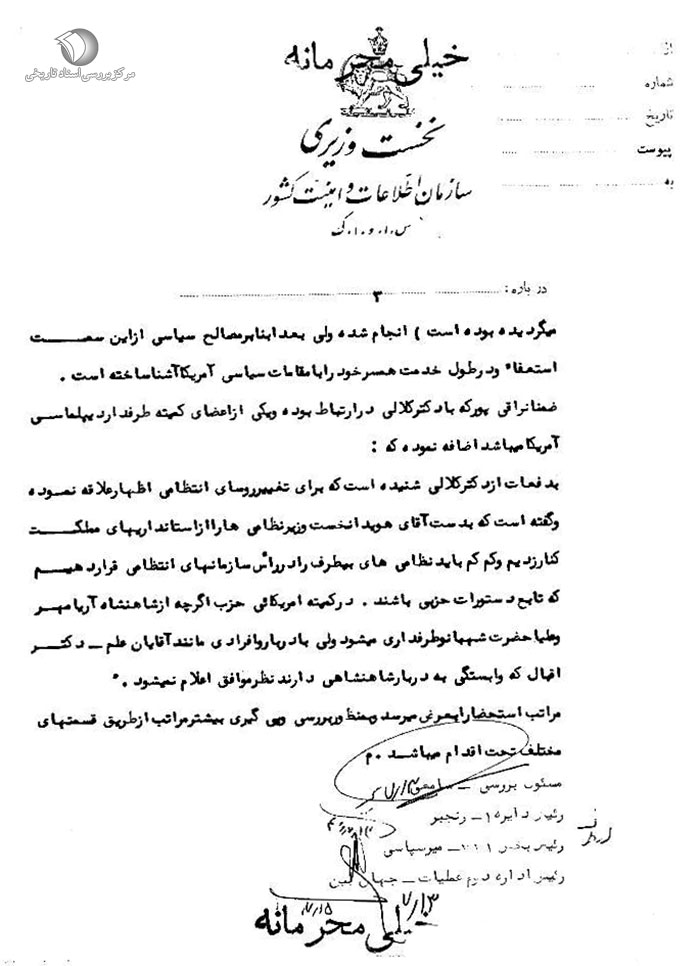 مرکز بررسی اسناد تاریخی
خیلی محرمانه
از
شماره
تاریخ
پیوست
به
نخست وزیری
سازمان اطلاعات و امنیت کشور
س.ا.و.ا.ک
درباره: ۳
میگردیده بوده است ) انجام شده ولی بعدا بنابر مصالح سیاسی از این سمت
استعفاء و در طول خدمت همسر خود را با مقامات سیاسی آمریکا آشنا ساخته است .
ضمنا نراقی پور که با دکتر کلالی در ارتباط بوده و یکی از اعضای کمیته طرفدار دیپلماسی
آمریکا میباشد اضافه نموده که :
بدفعات از دکتر کلالی شنیده است که برای تغییر روسای انتظامی اظهار علاقه نموده
وگفته است که بدست آقای هویدا نخست وزیر نظامی ها را از استانداریهای مملکت
کنار زدیم وکم کم باید نظامی های بیطرف را در رأس سازمانهای انتظامی قرار دهیم
که تابع دستورات حزبی باشند . در کمیته امریکائی حزب اگرچه از شاهنشاه آریامهر
وعلیاحضرت شهبانو طرفداری میشود ولی با دربار و افرادی مانند آقایان علم ـ دکتر
اقبال که وابستگی به دربار شاهنشاهی دارند نظر موافق اعلام نمیشود . "
مراتب استحضارا بعرض میرسد وبمنظور بررسی وپی گیری بیشتر مراتب از طریق قسمتهای
مختلف تحت اقدام میباشد . م
مسئول بررسی ـ
رئیس دایره ۱۵ ـ رنجبر
رئیس بخش ـ میرسپاسی
رئیس اداره دوم عملیات ـ جهان بین
۷/۱۳
۷/۱۵
خیلی محرمانه